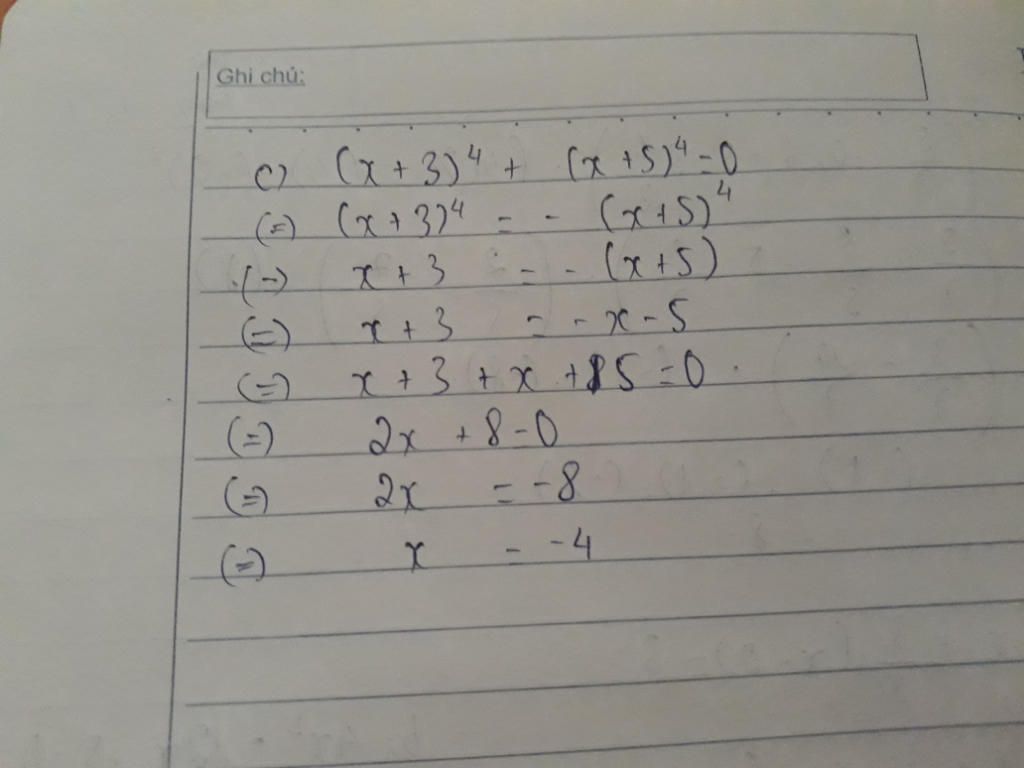 Ghi chú:
c) (x + 3)⁴ + (x + 5)⁴ = 0
(=) (x + 3)⁴ = - (x + 5)⁴
(=) x + 3 = - (x + 5)
(=) x + 3 = - x - 5
(=) x + 3 + x + 5 = 0
(=) 2x + 8 = 0
(=) 2x = -8
(=) x = -4